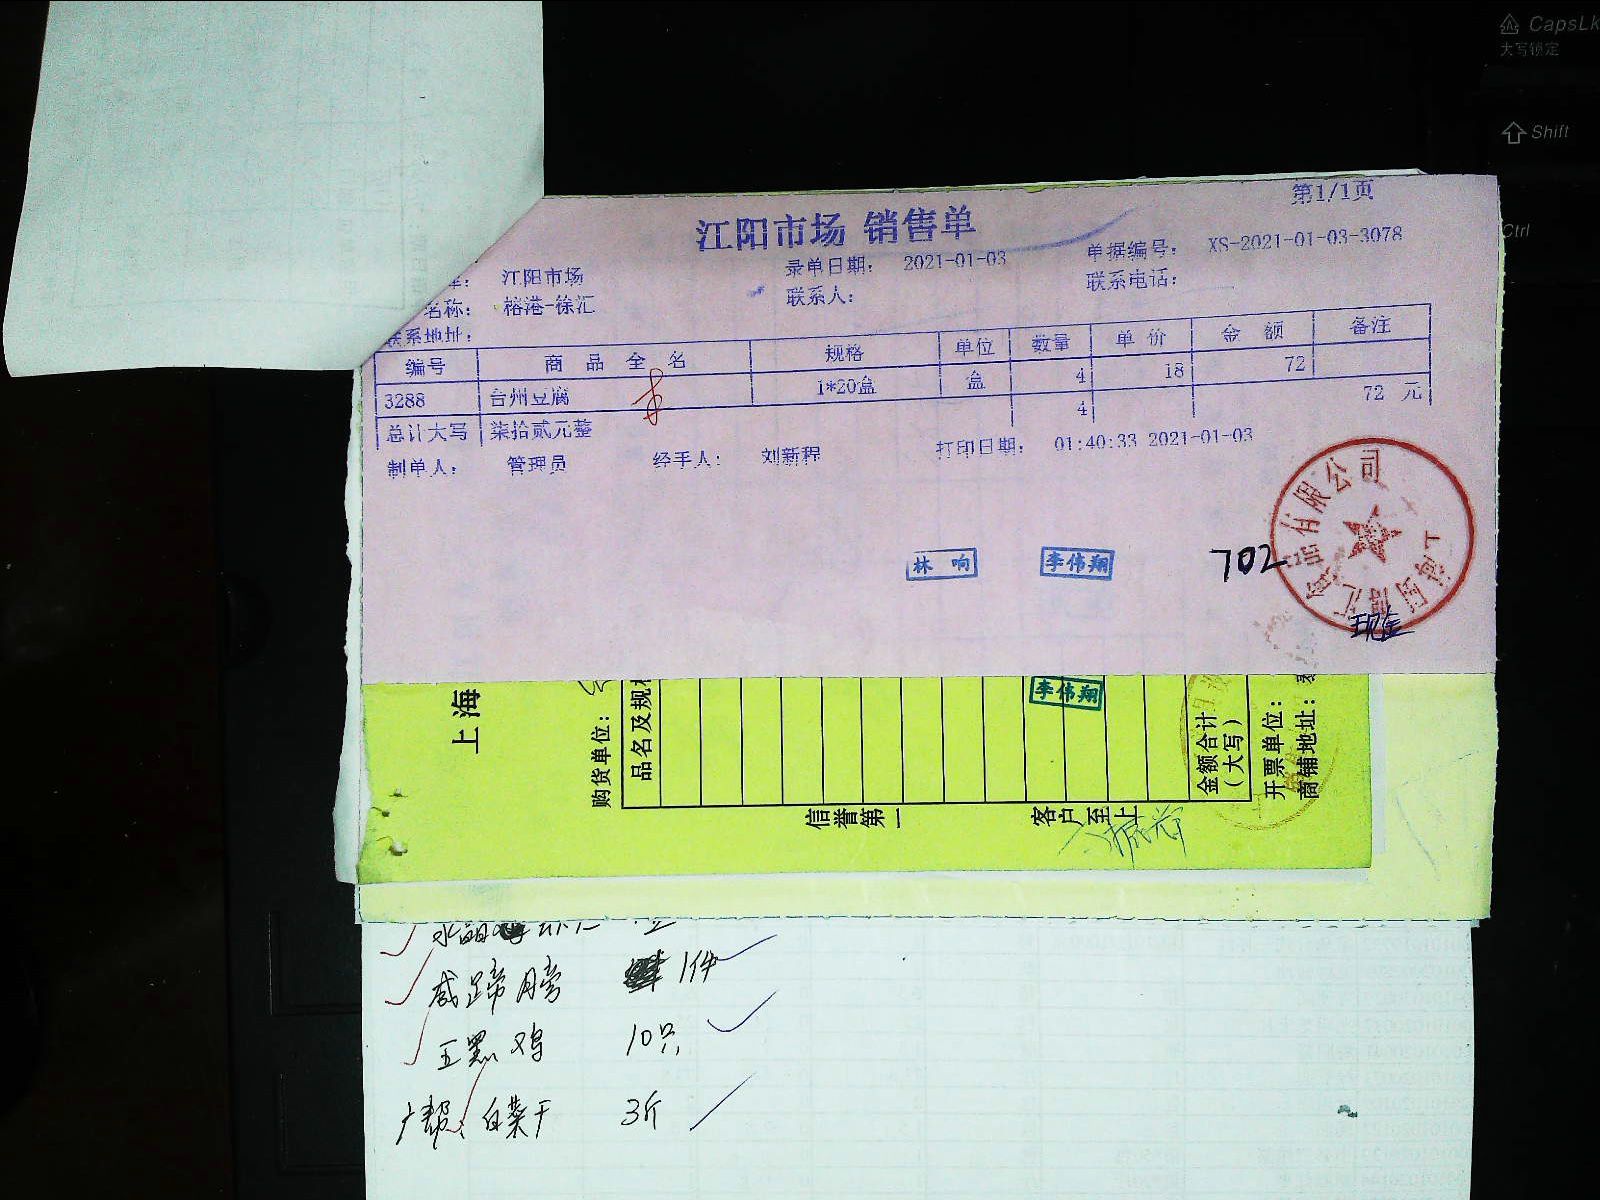 CapsLk
大写锁定
Shift
Ctrl
第1/1页
江阳市场 销售单
江阳市场 录单日期: 2021-01-03 单据编号: XS-2021-01-03-3078
名称: 榕港-徐汇 联系人: 联系电话:
联系地址:
编号 商品全名 规格 单位 数量 单价 金额 备注
3288 台州豆腐 1*20盒 盒 4 18 72
4 72 元
总计大写 柒拾贰元整
制单人: 管理员 经手人: 刘新程 打印日期: 01:40:33 2021-01-03
林响 李伟翔 702
有限公司
现金
上海
购货单位:
品名及规格
李伟翔
金额合计
(大写)
开票单位:
商铺地址:
信誉第一 客户至上
咸蹄膀 1件
五黑鸡 10只
广帮 白菜干 3斤